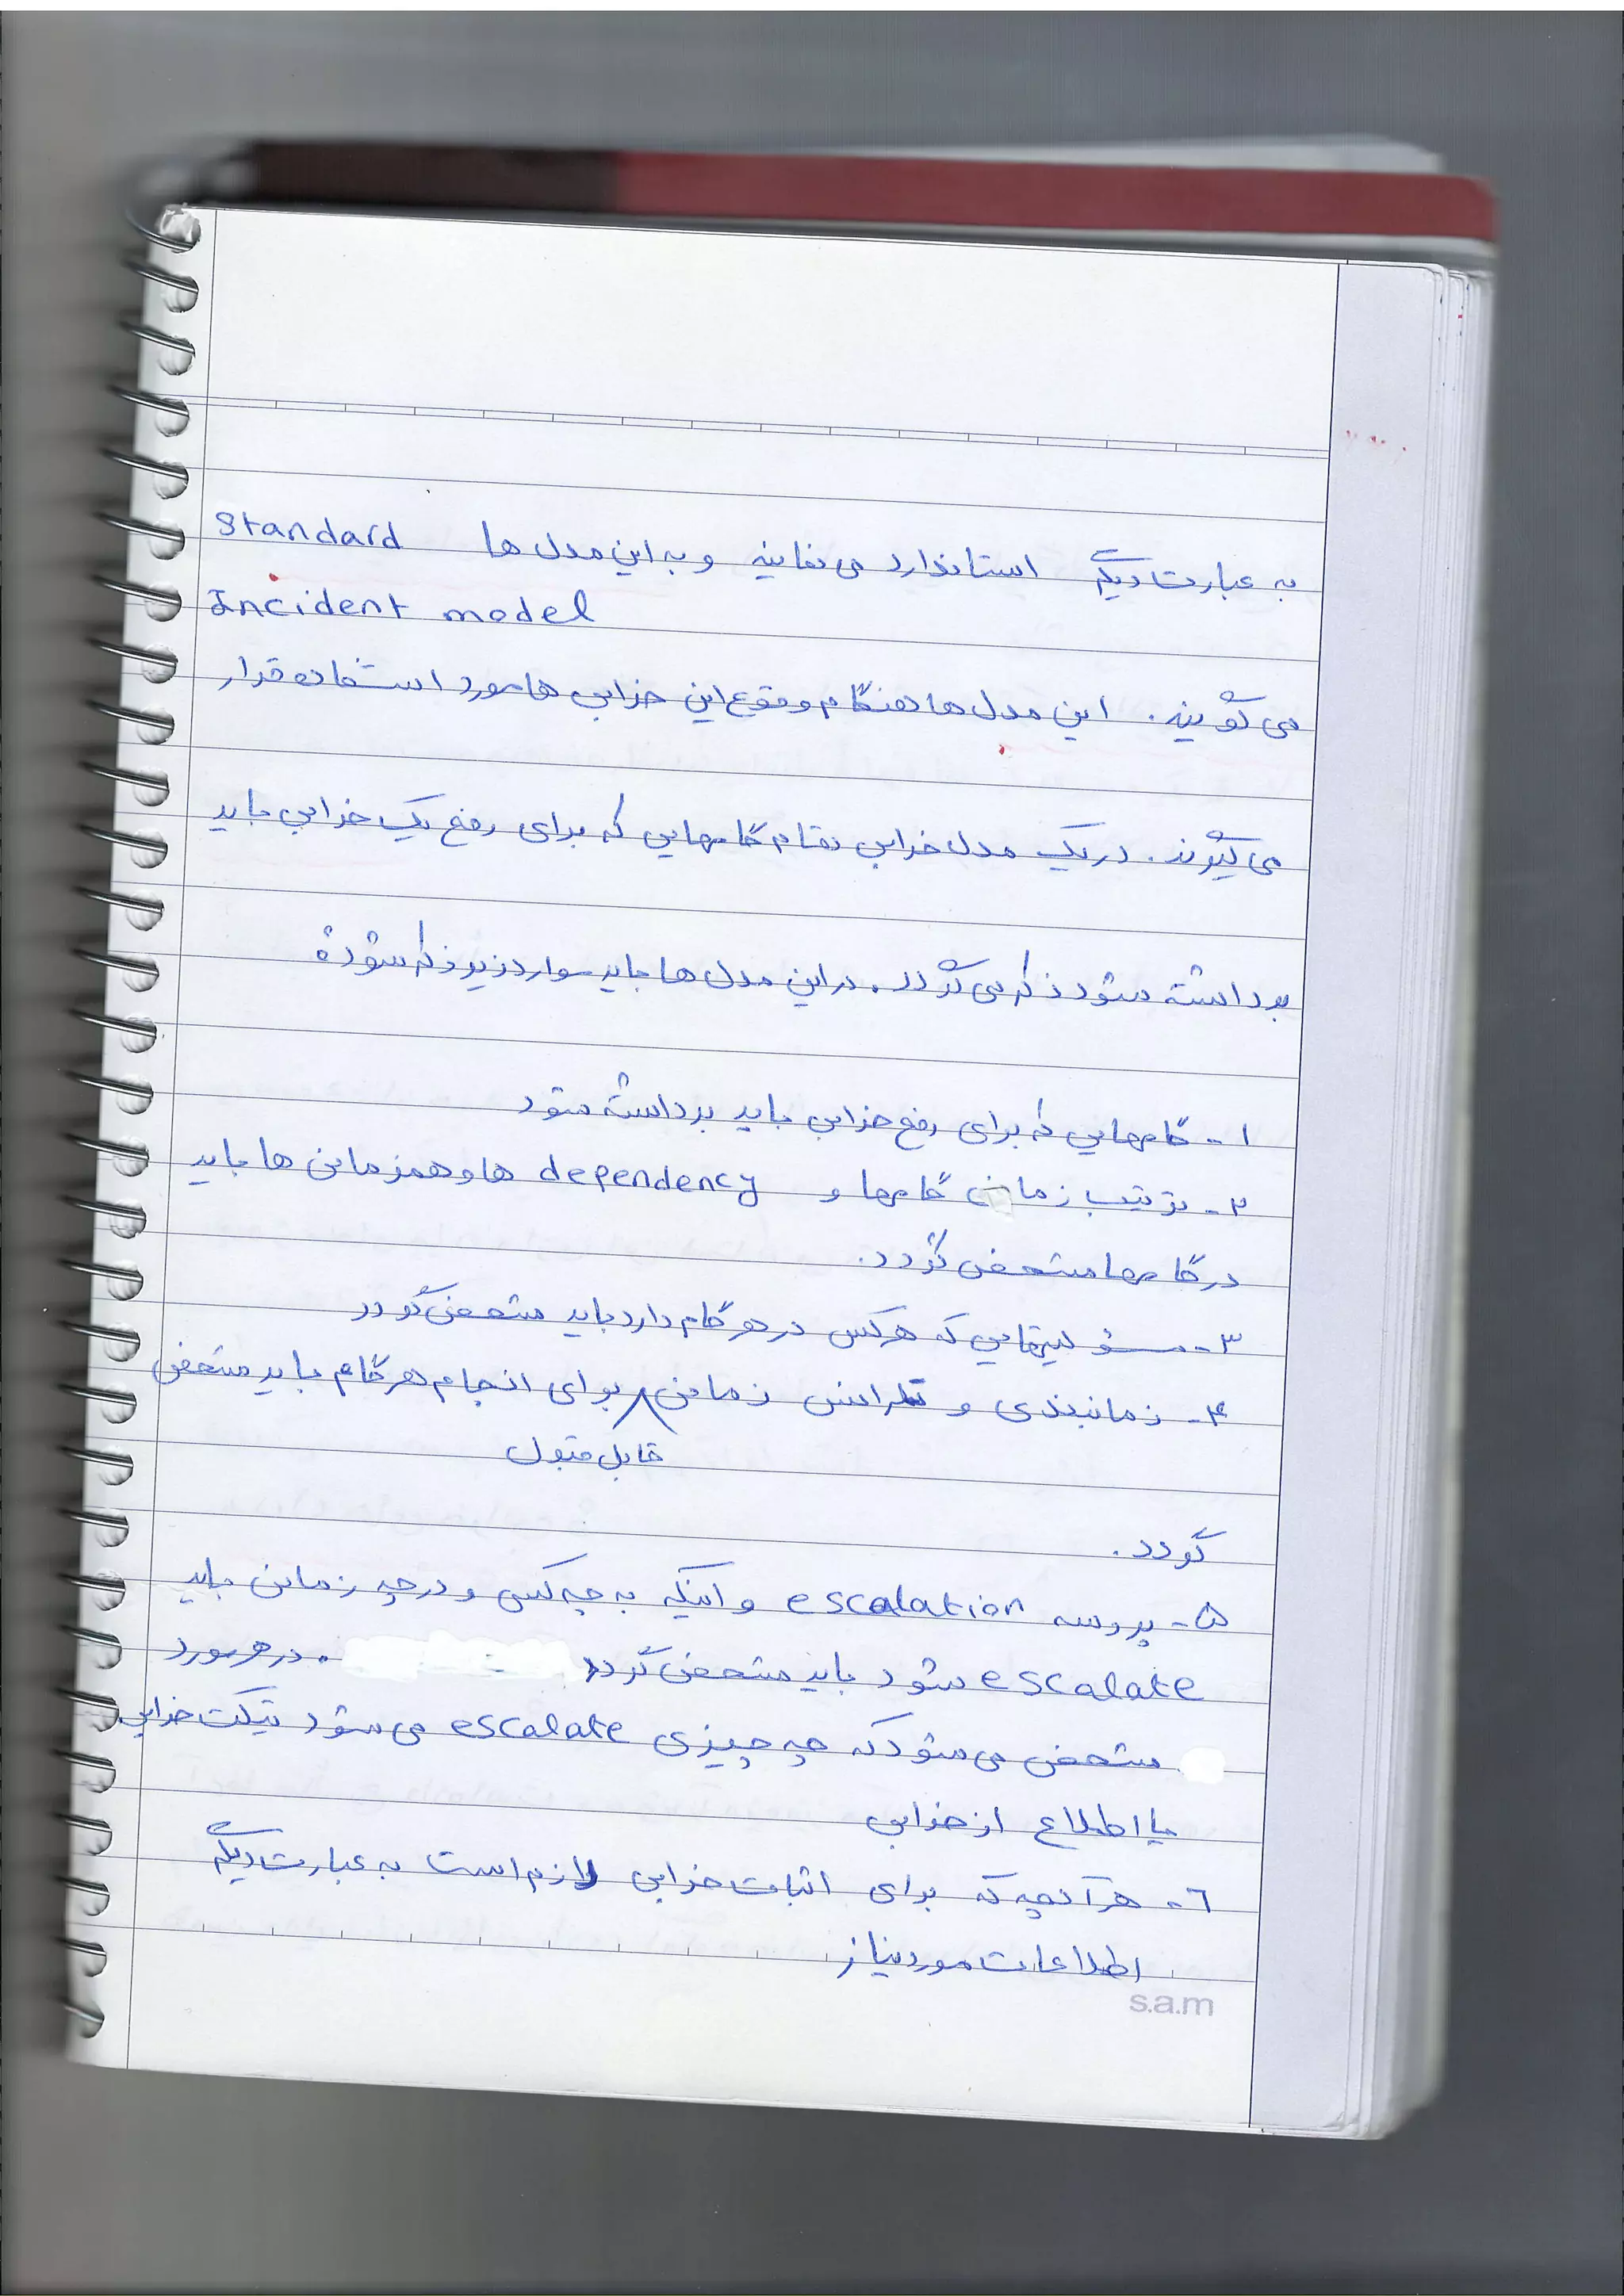 به عبارت دیگر استاندارد می نمایند و به این مدل ها Standard
Incident model
می گویند. این مدل ها هنگام وقوع این خرابی ها مورد استفاده قرار
می گیرند. در یک مدل خرابی تمام گامهایی که برای رفع یک خرابی باید
برداشته شود ذکر می گردد. در این مدل ها باید موارد زیر ذکر شود:
۱- گامهایی که برای رفع خرابی باید برداشته شود
۲- ترتیب زمانی گامها و dependency ها و همزمانی ها باید
در گامها مشخص گردد.
۳- مسئولیتهایی که هرکس در هر گام دارد باید مشخص گردد
۴- زمانبندی و تلرانس زمانی برای انجام هر گام باید مشخص
قابل قبول
گردد.
۵- پروسه escalation و اینکه به چه کسی و در چه زمانی باید
escalate شود باید مشخص گردد. در هر مورد
مشخص می شود که چه چیزی escalate می شود تیکت خرابی
یا اطلاع از خرابی
۶- هر آنچه که برای اثبات خرابی لازم است به عبارت دیگر
اطلاعات مورد نیاز
s.a.m